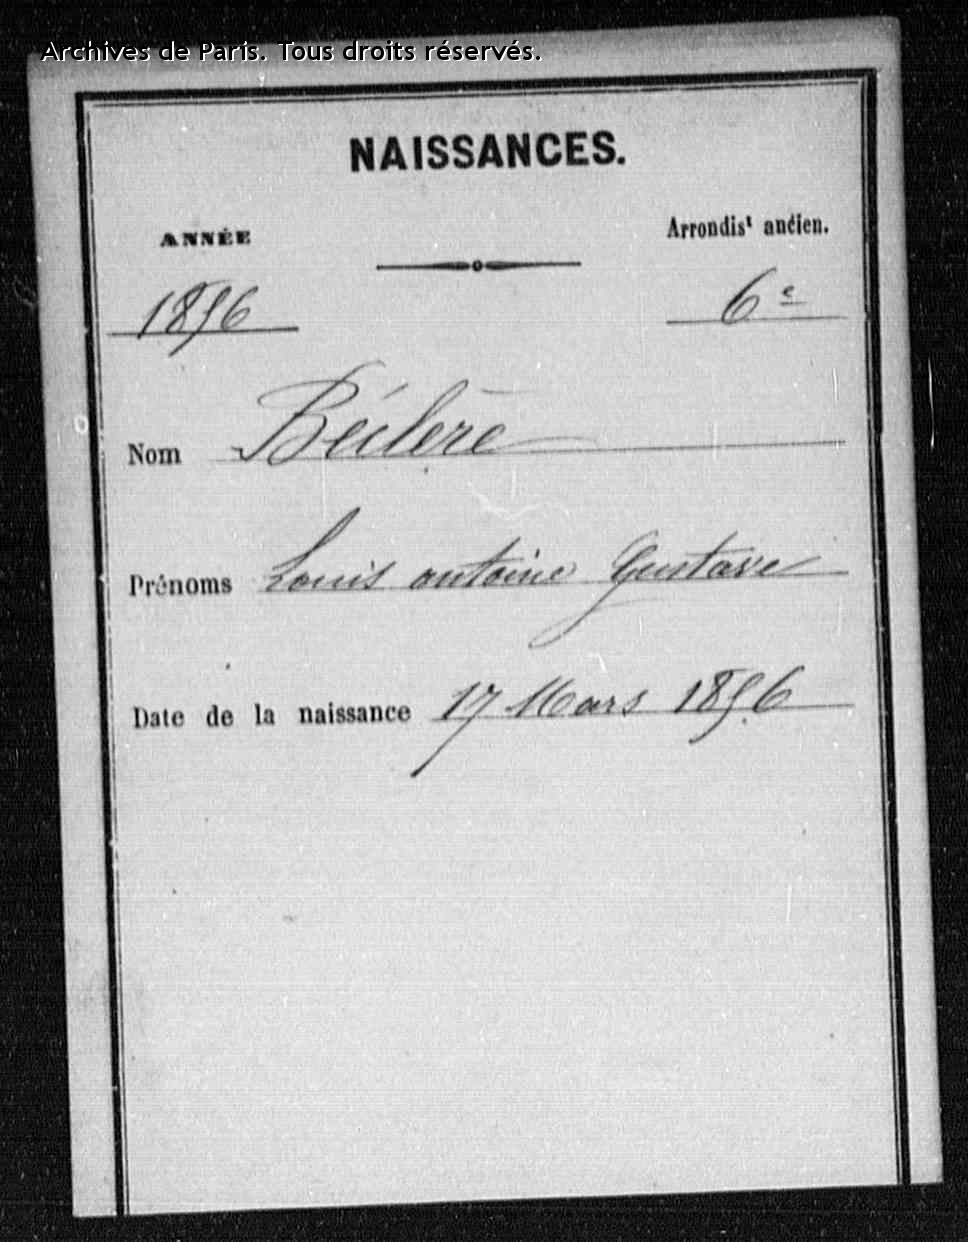 Archives de Paris. Tous droits réservés.
NAISSANCES.
ANNÉE
Arrondist ancien.
1856
6e
Nom Béclère
Prénoms Louis antoine Gustave
Date de la naissance 17 Mars 1856